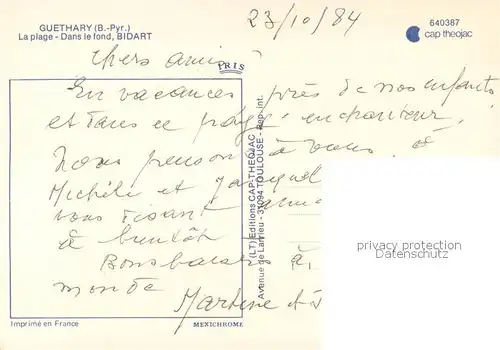 GUETHARY (B.-Pyr.)
La plage - Dans le fond, BIDART
23/10/84
640387
cap theojac
Chers amis
IRIS
En vacances près de nos enfants
et dans ce pays enchanteur,
nous pensons à vous. et
Michèle et
vous disant
à bientôt
Bons baisers à
monde
Martine et
(LT) Editions CAP-THEOJAC
Avenue de Larrieu - 31094 TOULOUSE - Rep. Int.
privacy protection
Imprimé en France
MEXICHROME